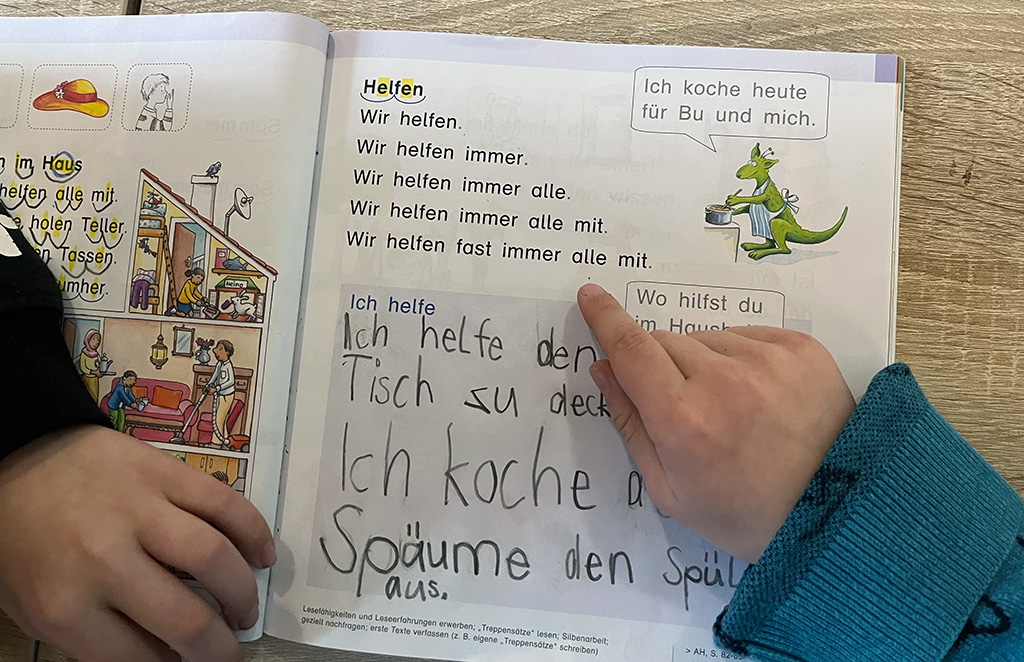 im Haus
helfen alle mit.
holen Teller.
Tassen.
umher.
Helfen
Wir helfen.
Wir helfen immer.
Wir helfen immer alle.
Wir helfen immer alle mit.
Wir helfen fast immer alle mit.
Ich koche heute
für Bu und mich.
Wo hilfst du
im
Ich helfe
Ich helfe den
Tisch zu
Ich koche
Späume den
aus.
Lesefähigkeiten und Leseerfahrungen erwerben; „Treppensätze" lesen; Silbenarbeit;
gezielt nachfragen; erste Texte verfassen (z. B. eigene „Treppensätze" schreiben)
> AH, S.